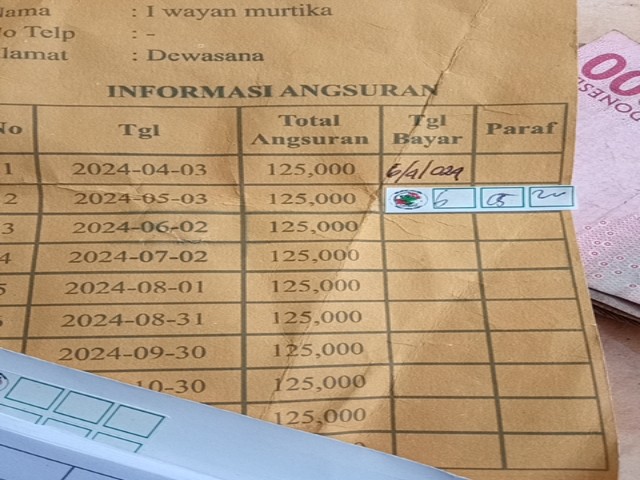 Nama : I wayan murtika
No Telp : -
Alamat : Dewasana
INFORMASI ANGSURAN
No Tgl Total Angsuran Tgl Bayar Paraf
1 2024-04-03 125,000
2 2024-05-03 125,000
3 2024-06-02 125,000
4 2024-07-02 125,000
5 2024-08-01 125,000
6 2024-08-31 125,000
2024-09-30 125,000
10-30 125,000
125,000